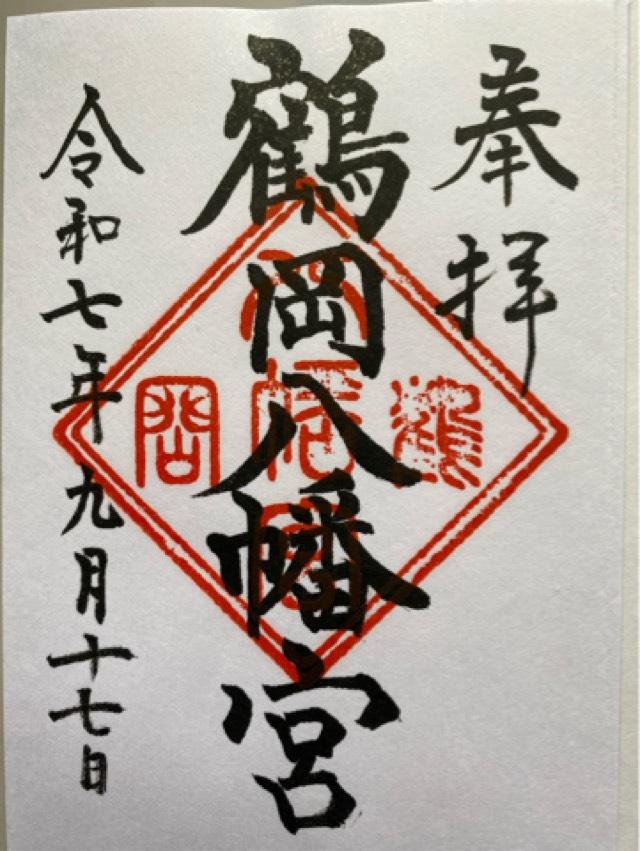 奉拝
鶴岡八幡宮
令和七年九月十七日